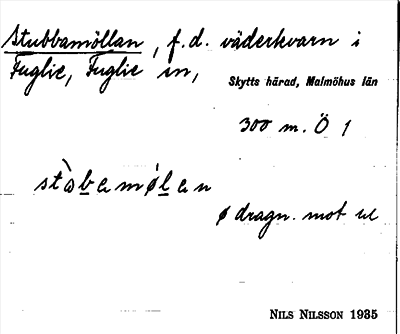 Stubbamöllan, f.d. väderkvarn i
Fuglie, Fuglie sn,
Skytts härad, Malmöhus län
300 m. Ö 1
stàbamølan
ø dragn. mot
NILS NILSSON 1935